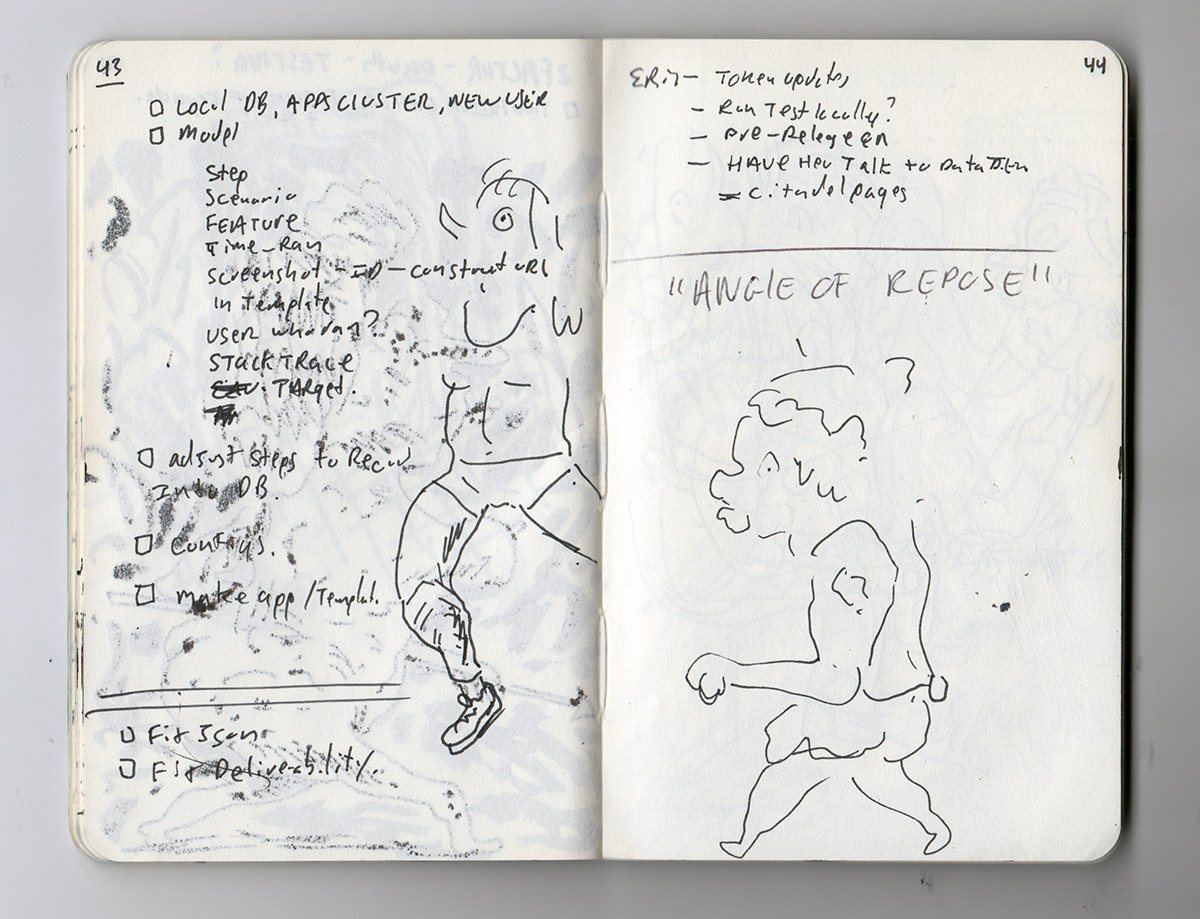 43
Local DB, APPS CLUSTER, NEW USER
Model
Step
Scenario
FEATURE
Time-Ran
Screenshot - ID - construct URL
in template
USER who ran?
STACKTRACE
TARget.
adjust Steps to Record
Into DB.
make app / Template.
Deliverability.
44
ERin - Token updates
- Run Test locally?
- HAVE Her Talk to Data
- citadel pages
"ANGLE OF REPOSE"